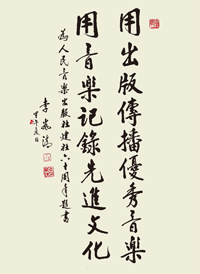 用出版傳播優秀音樂
用音樂記錄先進文化
為人民音樂出版社建社六十周年題書
李嵐清
甲午夏日